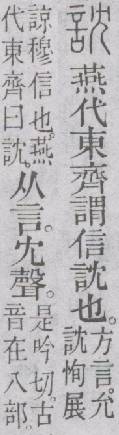 訦 燕代東齊謂信訦也。方言。允訦恂展
諒穆信也。燕代東齊曰訦。从言。冘聲。是吟切。古音在八部。